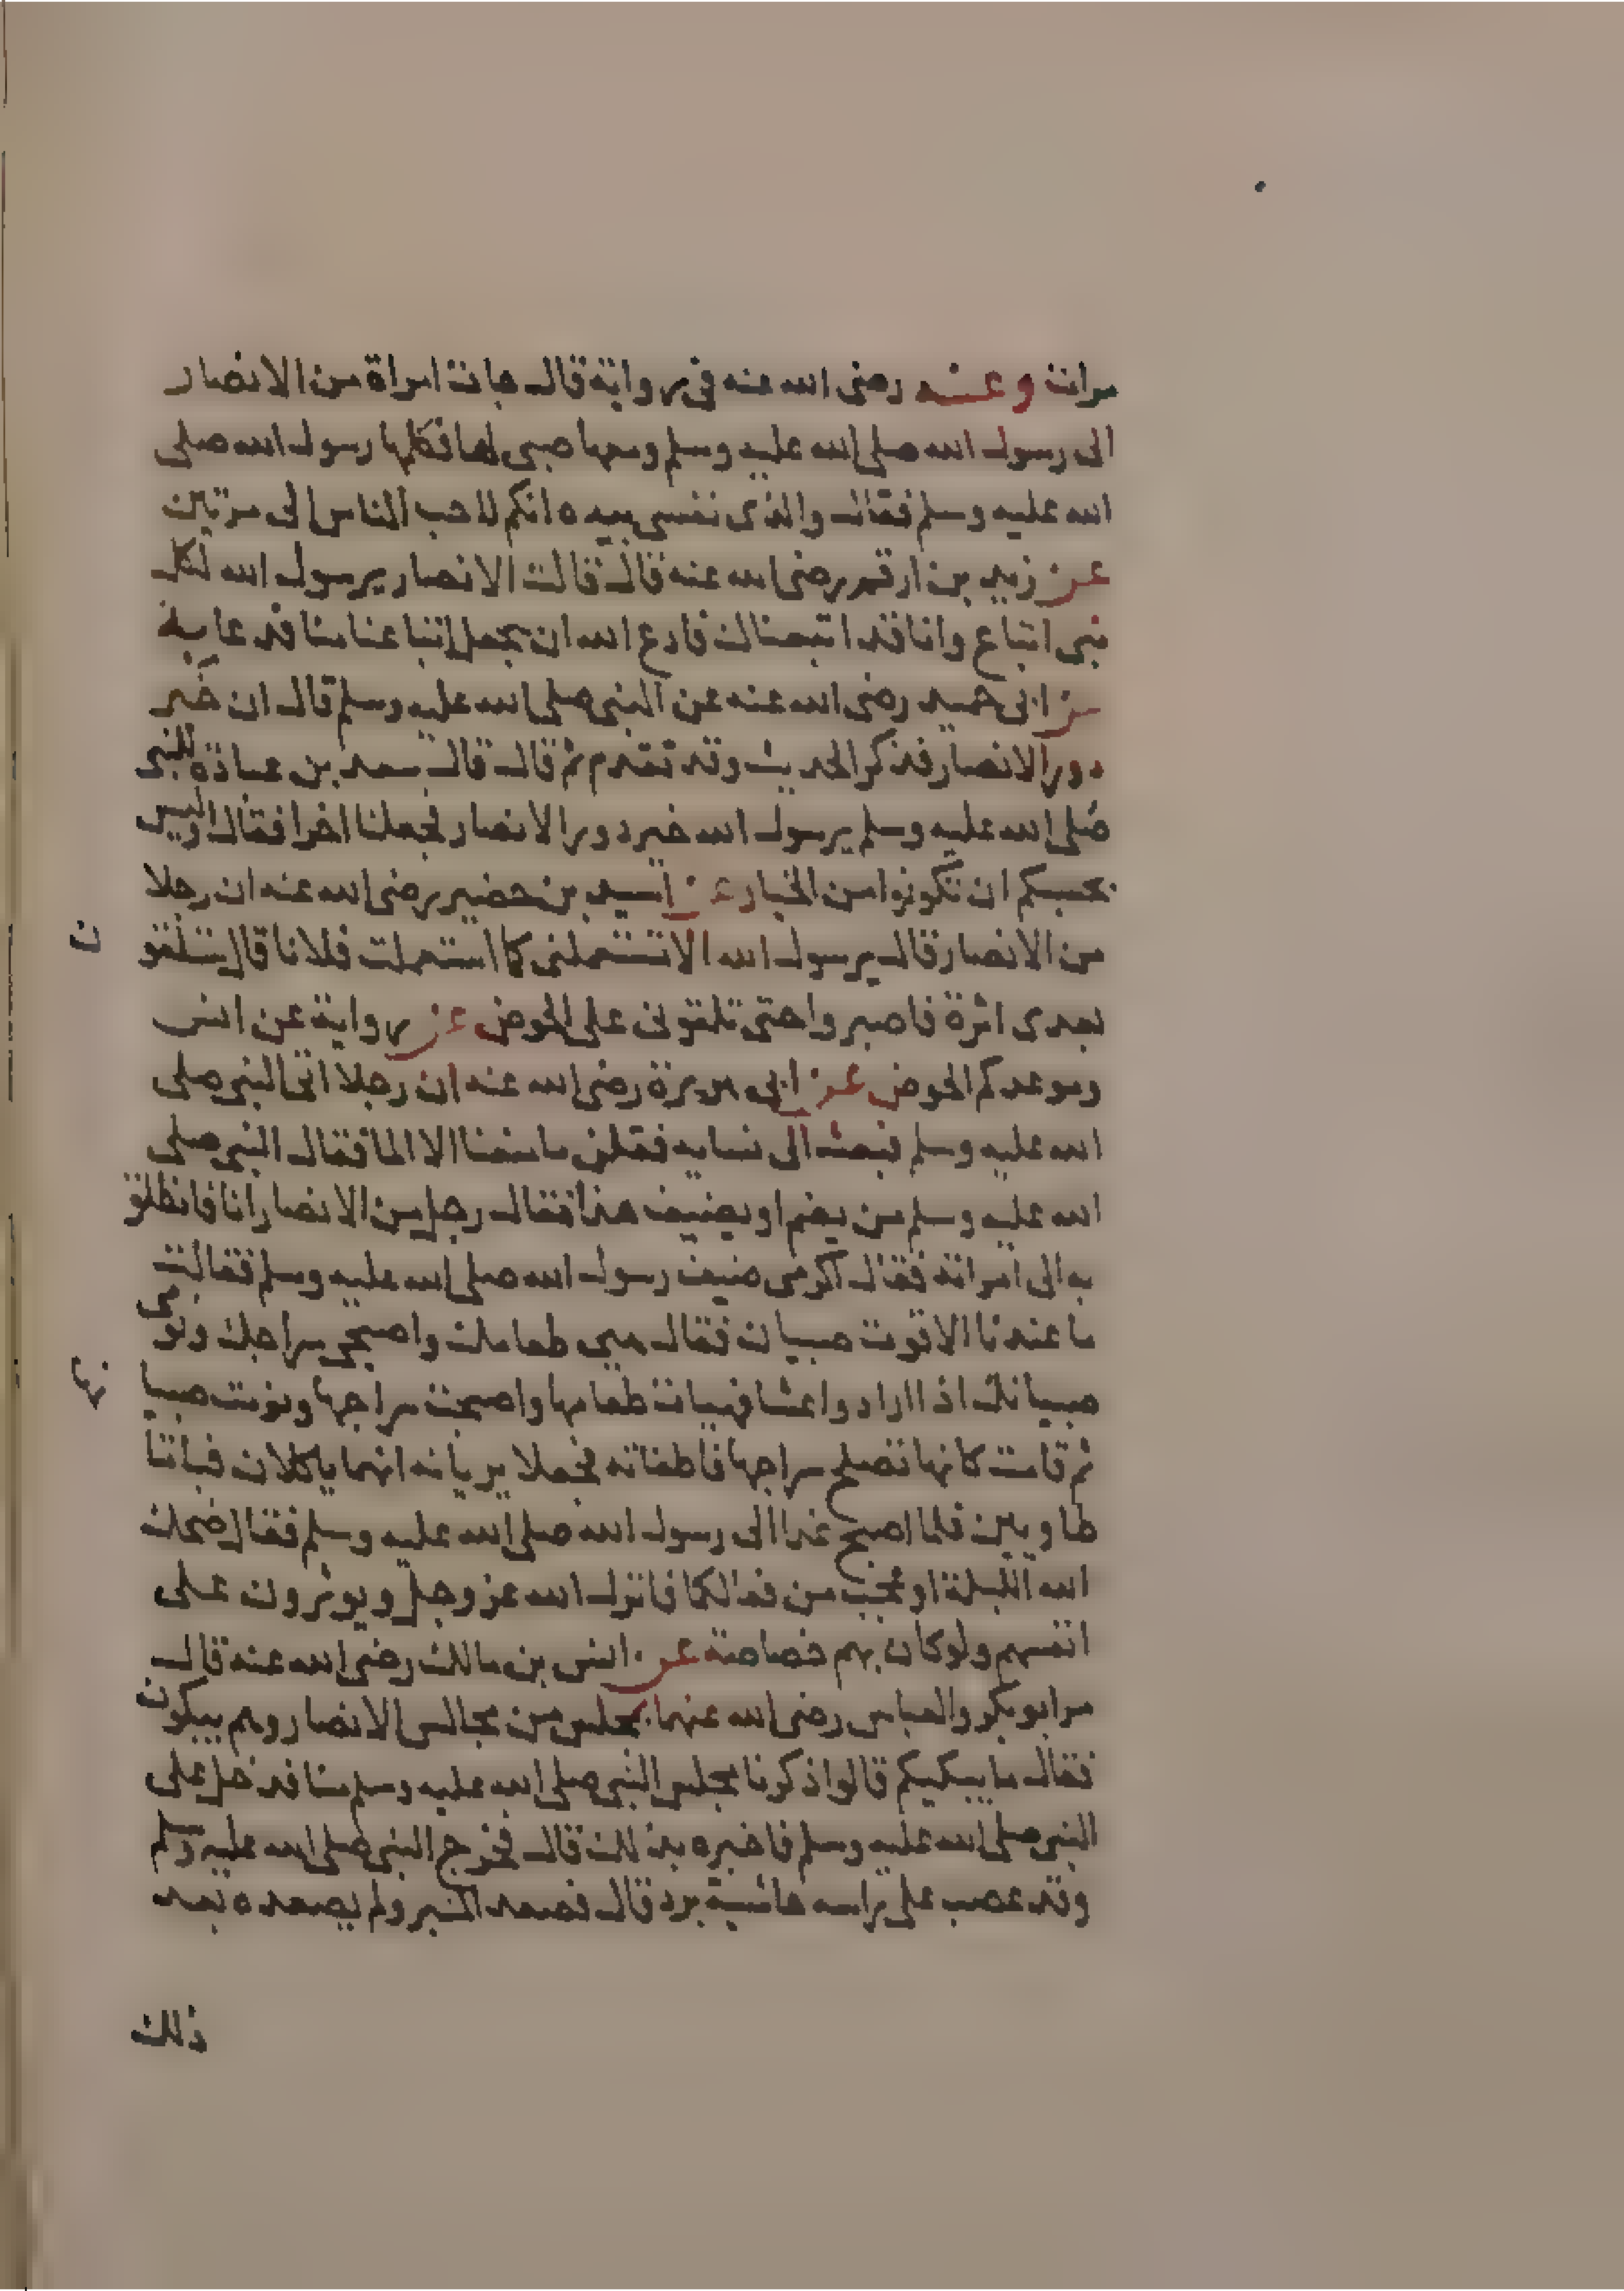 مرات وعنه رضى الله عنه فى رواية قال جات امراة من الانصار
الى رسول الله صلى الله عليه وسلم ومعها صبى لها فكلمها رسول الله صلى
الله عليه وسلم فقال والذى نفسى بيده انكم لاحب الناس الى مرتين
عن زيد بن ارقم رضى الله عنه قال قالت الانصار يرسول الله لكل
نبى اتباع وانا قد اتبعناك فادع الله ان يجعل اتباعنا منا فدعا به
عن ابى حميد رضى الله عنه عن النبى صلى الله عليه وسلم قال ان خير
دور الانصار فذكر الحديث وقد تقدم ثم قال قال سعد بن عبادة للنبى
صلى الله عليه وسلم يرسول الله خير دور الانصار فجعلنا اخرا فقال اوليس
بحسبكم ان تكونوا من الخيار عن اسيد بن حضير رضى الله عنه ان رجلا
من الانصار قال يرسول الله الا تستعملنى كما استعملت فلانا قال ستلقو
ن
بعدى اثرة فاصبروا حتى تلقونى على الحوض عن رواية عن انس
وموعدكم الحوض عن ابى هريرة رضى الله عنه ان رجلا اتى النبى صلى
الله عليه وسلم فبعث الى نسايه فقلن ما معنا الا الما فقال النبى صلى
الله عليه وسلم من يضم او يضيف هذا فقال رجل من الانصار انا فانطلق
به الى امراته فقال اكرمى ضيف رسول الله صلى الله عليه وسلم فقالت
ما عندنا الا قوت صبيان فقال هيى طعامك واصبحى سراجك ونومى
صبيانك اذا ارادوا عشا فهيات طعامها واصبحت سراجها ونومت صبيا
نها
ثم قامت كانها تصلح سراجها فاطفاته فجعلا يريانه انهما ياكلان فباتا
طاويين فلما اصبح غدا الى رسول الله صلى الله عليه وسلم فقال ضحك
الله الليلة او عجب من فعالكما فانزل الله عز وجل ويوثرون على
انفسهم ولو كان بهم خصاصة عن انس بن مالك رضى الله عنه قال
مر ابو بكر والعباس رضى الله عنهما بمجلس من مجالس الانصار وهم يبكون
فقال ما يبكيكم قالوا ذكرنا مجلس النبى صلى الله عليه وسلم منا فدخل على
النبى صلى الله عليه وسلم فاخبره بذلك قال فخرج النبى صلى الله عليه وسلم
وقد عصب على راسه حاشية برد قال فصعد المنبر ولم يصعده بعد
ذلك